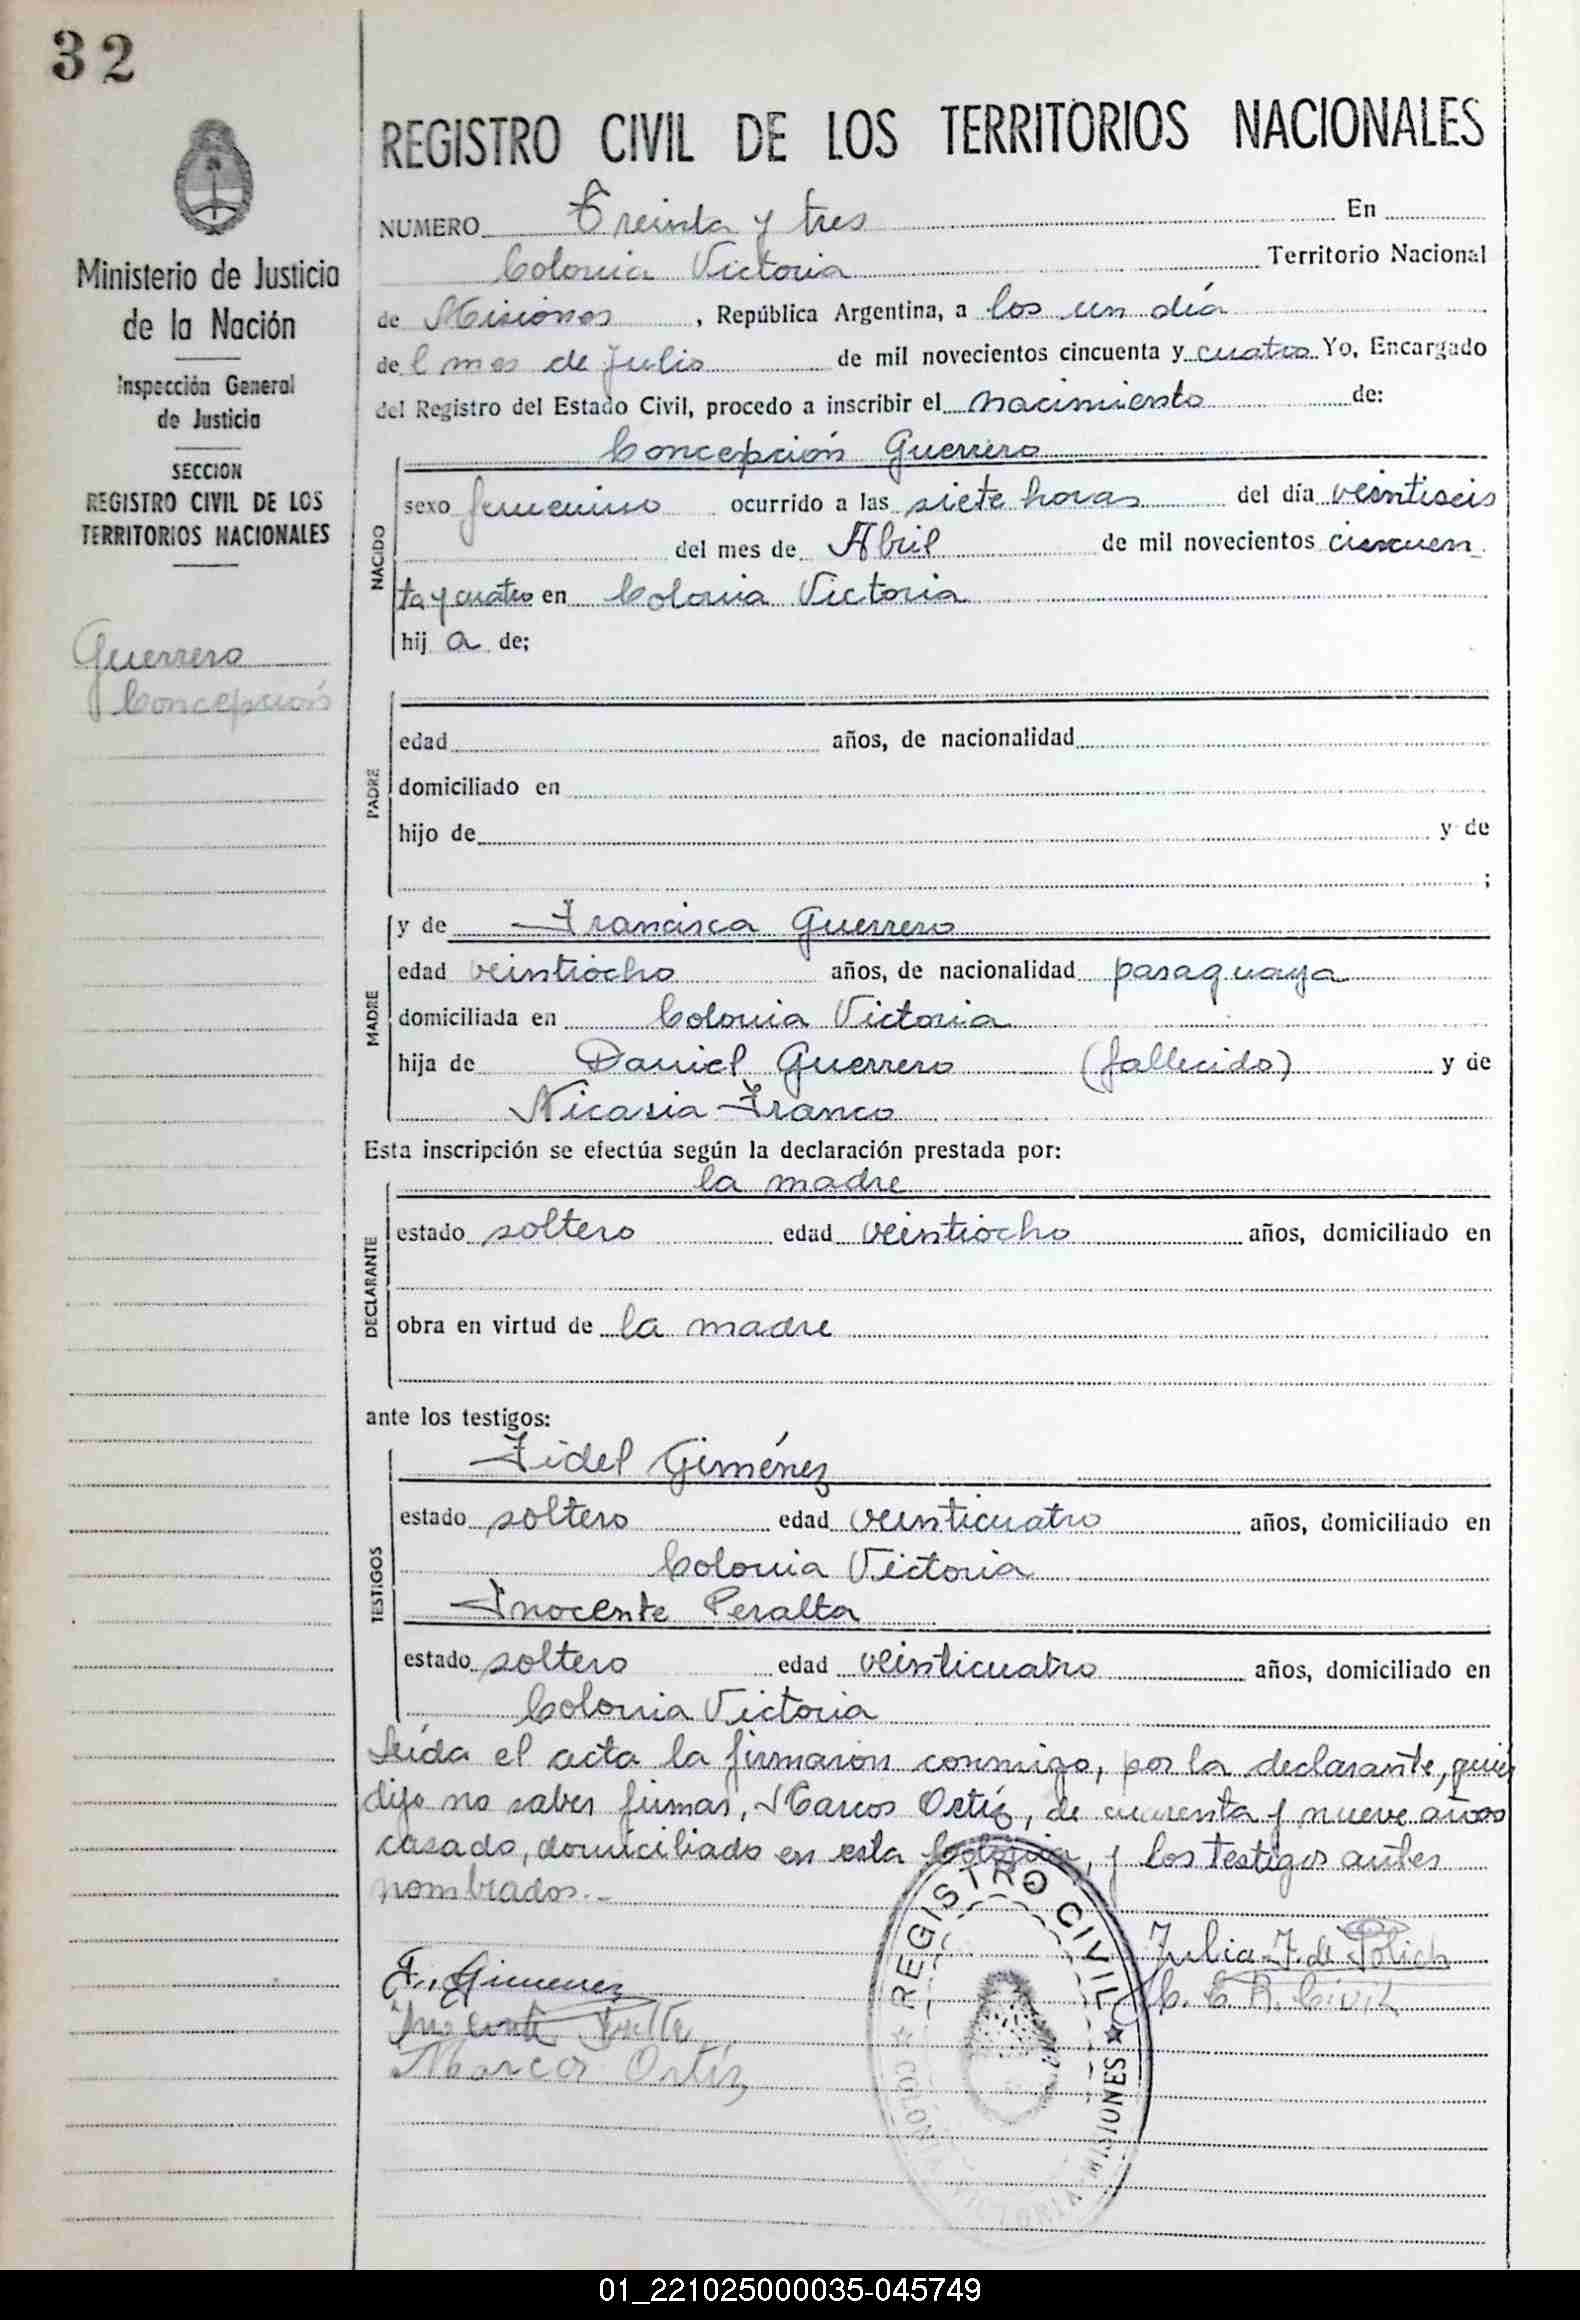 32
Ministerio de Justicia
de la Nación
Inspección General
de Justicia
SECCION
REGISTRO CIVIL DE LOS
TERRITORIOS NACIONALES
Guerrero
Concepción
REGISTRO CIVIL DE LOS TERRITORIOS NACIONALES
NUMERO Treinta y tres En
Colonia Victoria Territorio Nacional
de Misiones, República Argentina, a los un día
del mes de Julio de mil novecientos cincuenta y cuatro Yo, Encargado
del Registro del Estado Civil, procedo a inscribir el nacimiento de:
Concepción Guerrero
NACIDO
sexo femenino ocurrido a las siete horas del día veintiseis
del mes de Abril de mil novecientos cincuen
ta y cuatro en Colonia Victoria
hija de;
PADRE
edad años, de nacionalidad
domiciliado en
hijo de y de
;
y de Francisca Guerrero
MADRE
edad veintiocho años, de nacionalidad paraguaya
domiciliada en Colonia Victoria
hija de Daniel Guerrero (fallecido) y de
Nicasia Franco
Esta inscripción se efectúa según la declaración prestada por:
la madre
DECLARANTE
estado soltero edad veintiocho años, domiciliado en
obra en virtud de la madre
ante los testigos:
Fidel Giménez
TESTIGOS
estado soltero edad veinticuatro años, domiciliado en
Colonia Victoria
Inocente Peralta
estado soltero edad veinticuatro años, domiciliado en
Colonia Victoria
Leída el acta la firmaron conmigo, por la declarante, quien
dijo no saber firmar, Marcos Ortíz, de cuarenta y nueve años
casado, domiciliado en esta Colonia, y los testigos antes
nombrados.-
Julia F. de Polich
F. Gimenez
R. Civil
Marcos Ortíz
REGISTRO CIVIL
COLONIA VICTORIA - MISIONES
01_221025000035-045749